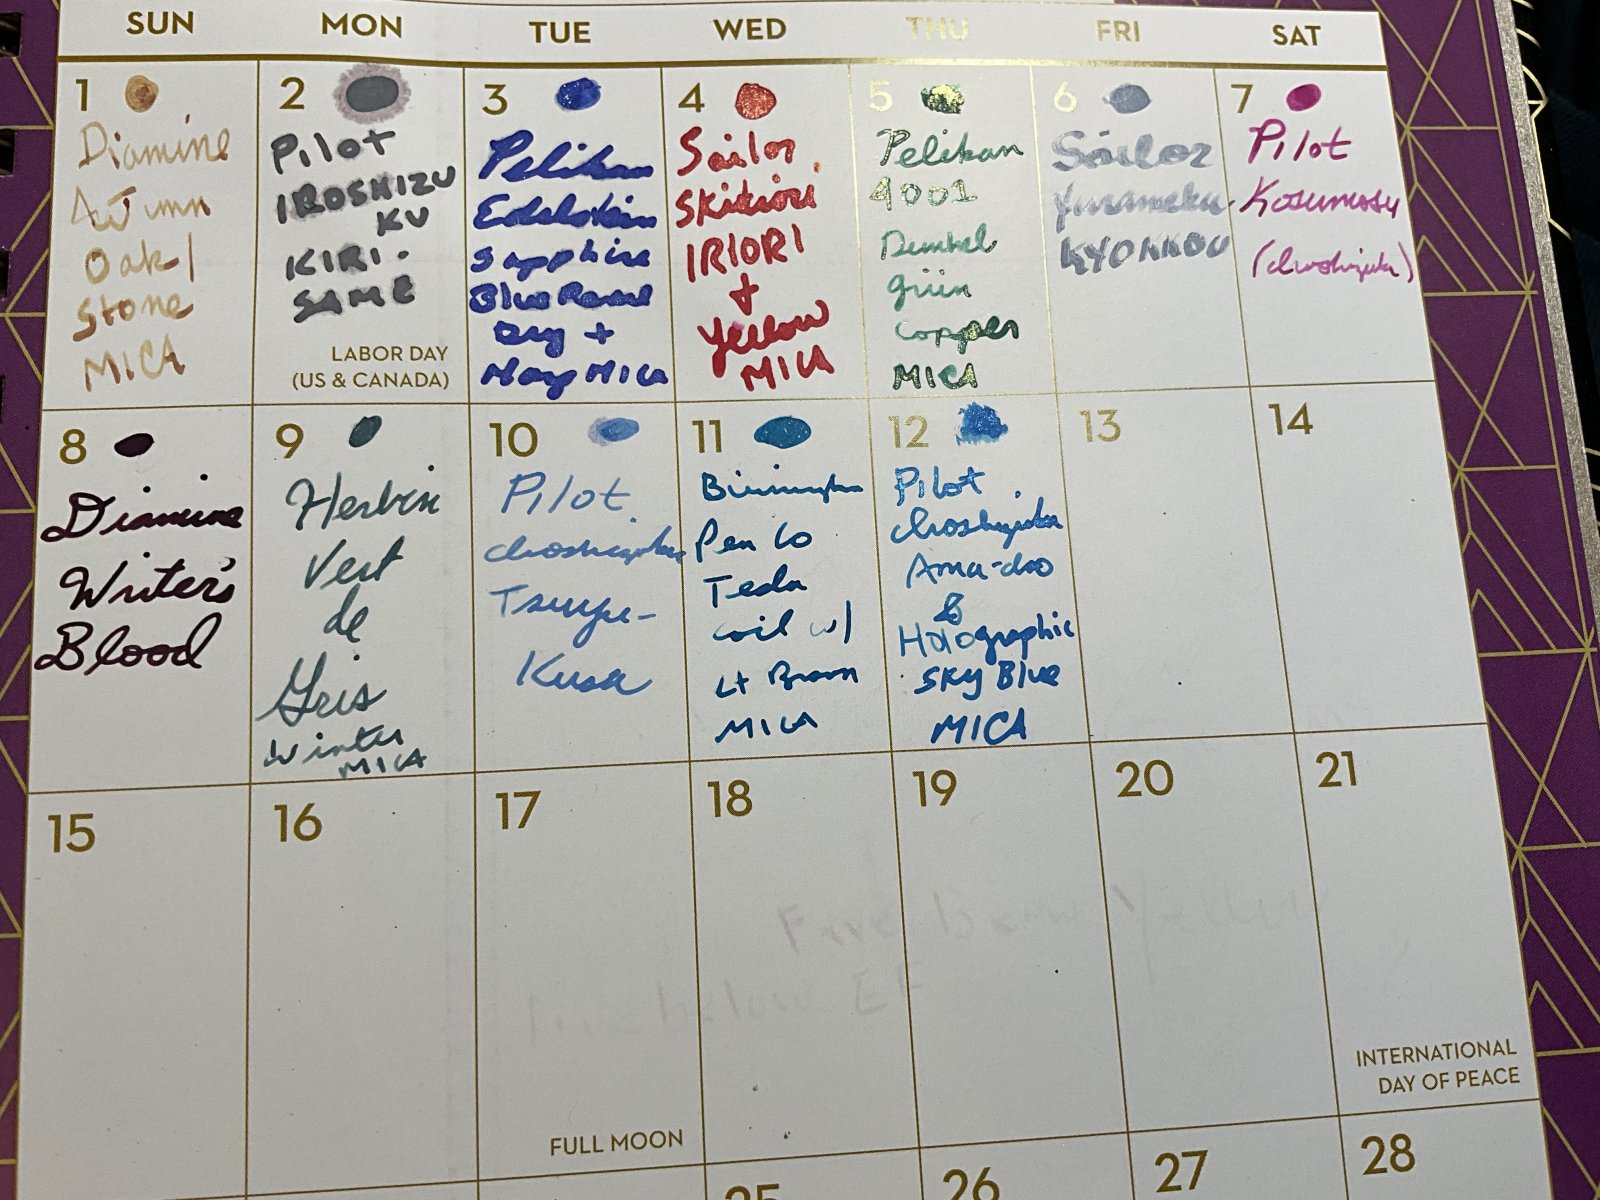 SUN MON TUE WED THU FRI SAT
1
Diamine
Autumn
Oak/
Stone
MICA
2
Pilot
IROSHIZU
KU
KIRI.
SAME
LABOR DAY
(US & CANADA)
3
Pelikan
Edelstein
Sapphire
Blue
Day +
Navy MICA
4
Sailor
IRIORI
+
Yellow
MICA
5
Pelikan
4001
Dunkel
grün
copper
MICA
6
Sailor
Yurameku
KYOKKOU
7
Pilot
Kosumosu
(iroshizuku)
8
Diamine
Writer's
Blood
9
Herbin
Vert
de
Gris
Winter
MICA
10
Pilot
iroshizuku
Tsuyu-
Kusa
11
Birmingham
Pen Co
Tesla
coil w/
Lt Brown
MICA
12
Pilot
iroshizuku
Ama-iro
&
Holographic
Sky Blue
MICA
13
14
15
16
17
FULL MOON
18
19
20
21
INTERNATIONAL
DAY OF PEACE
25
26
27
28